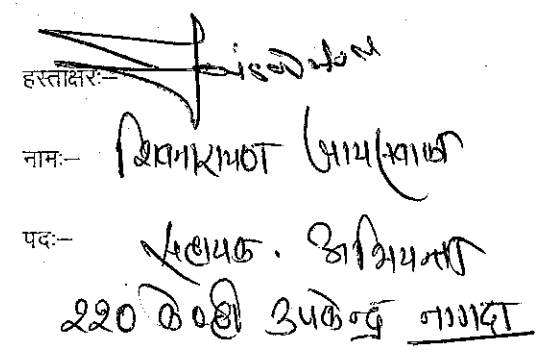 हस्ताक्षरः–
नामः– शिवनारायण जायसवाल
पदः– सहायक. अभियन्ता
220 केव्ही उपकेन्द्र नागदा